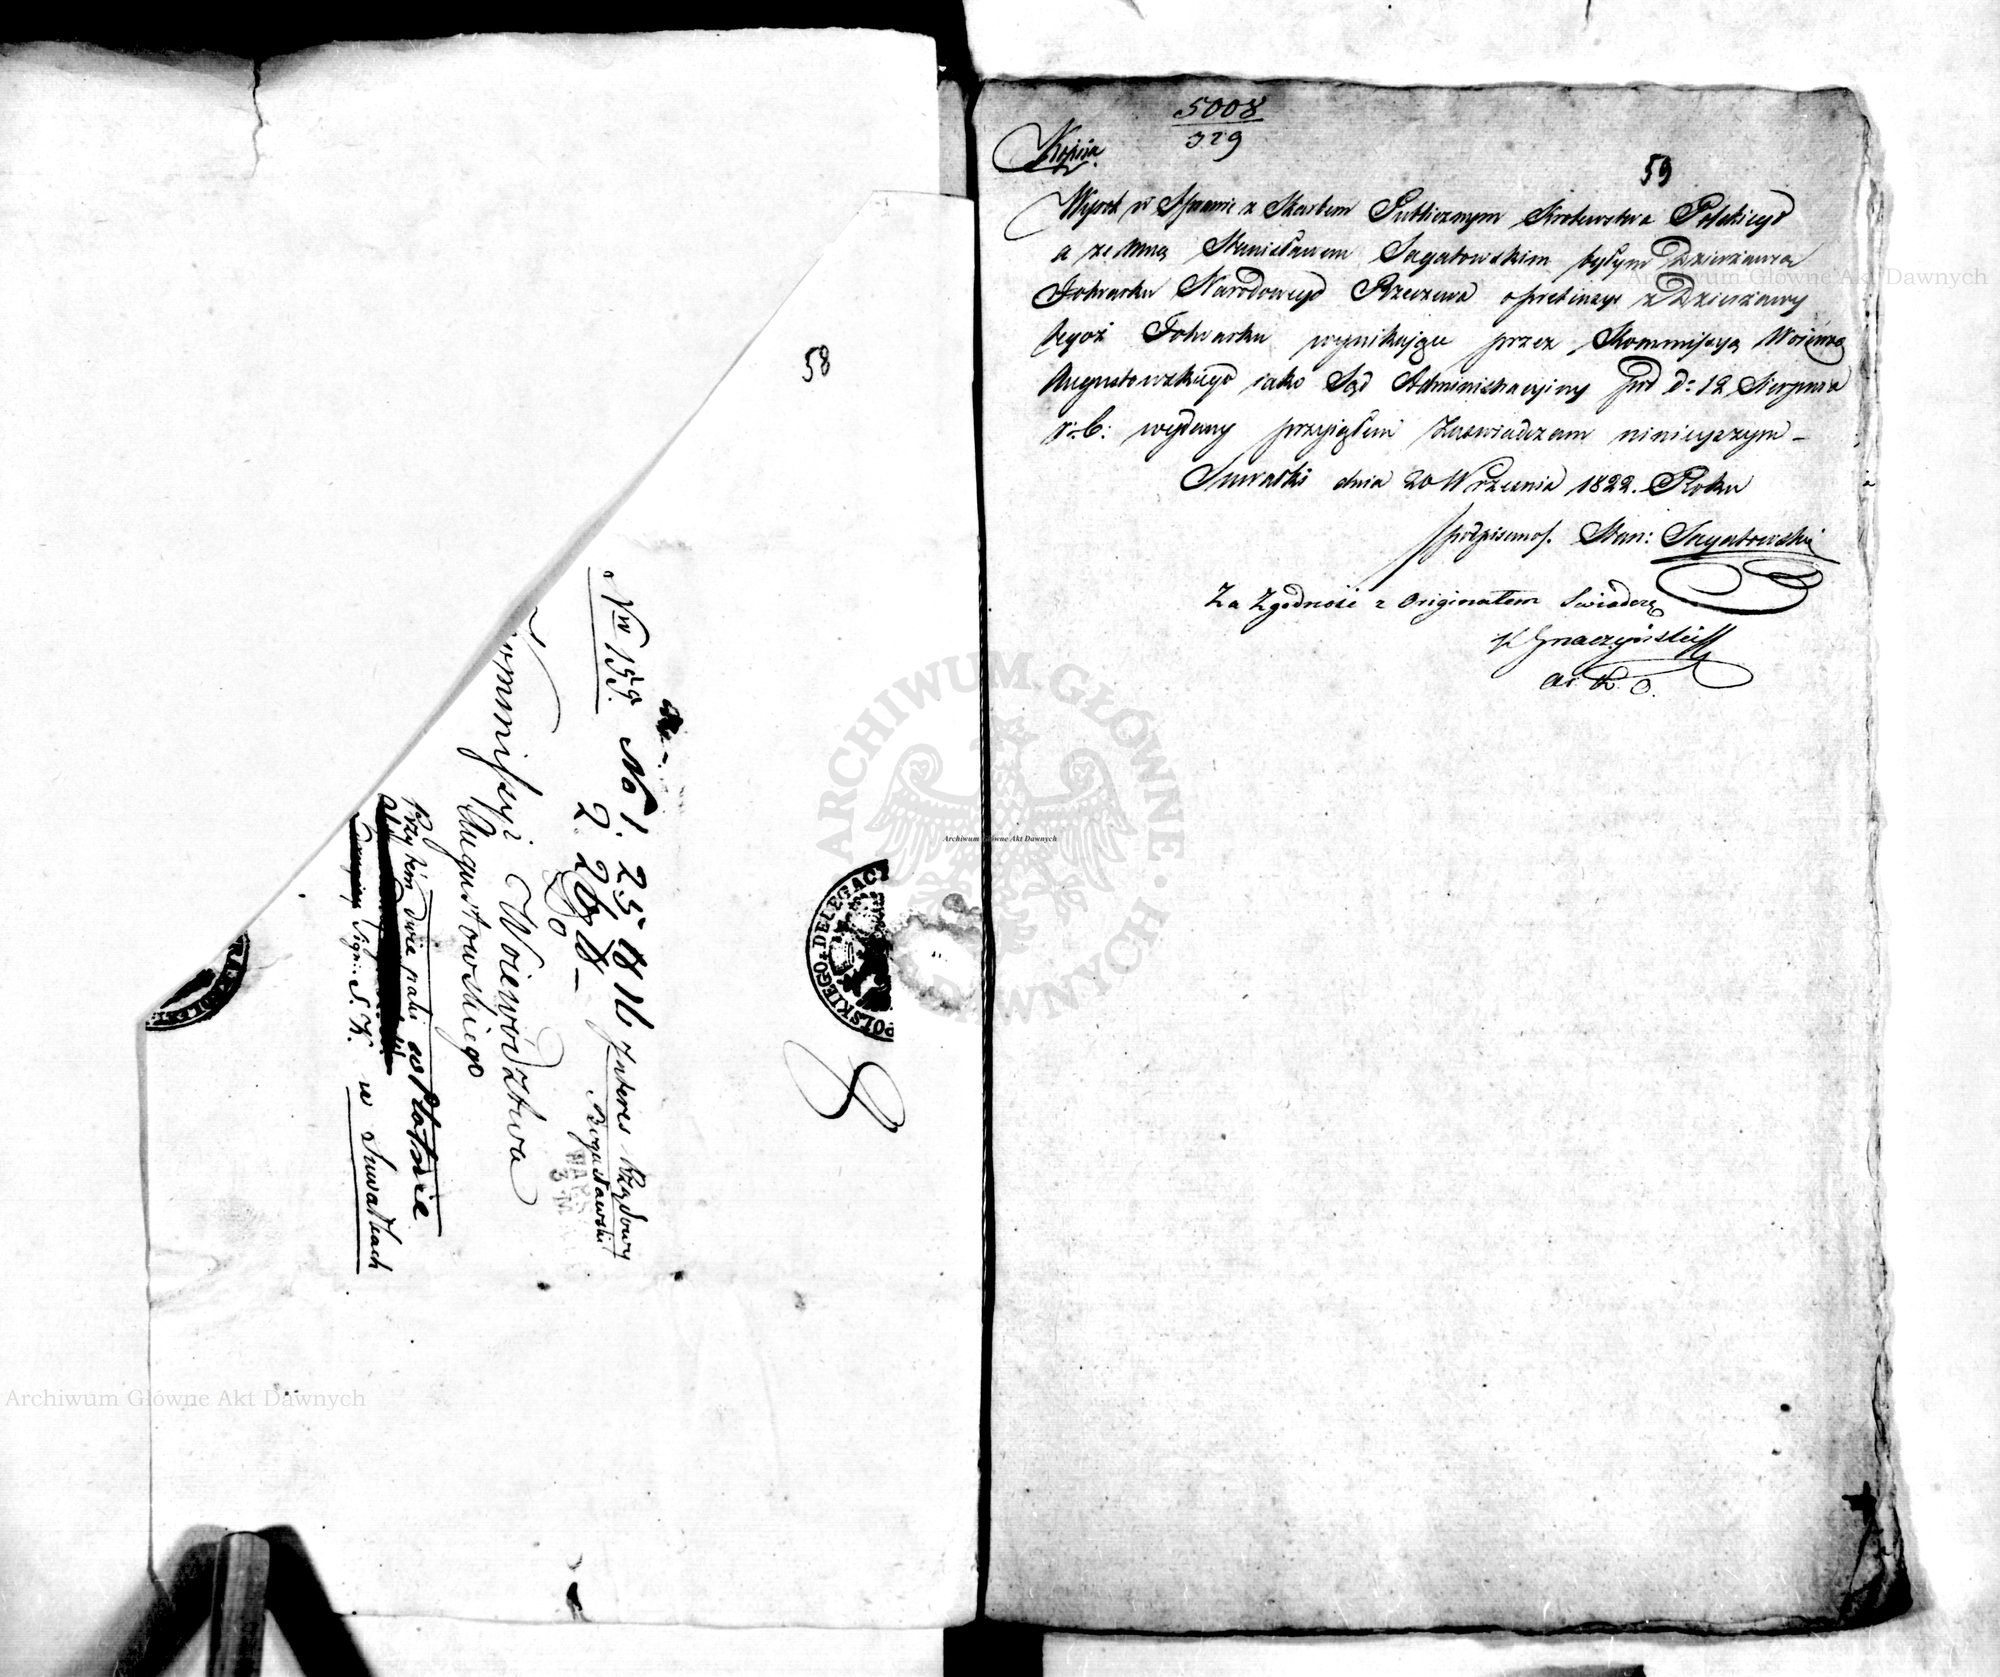 58
Nro 159.
No 1. 25 
2. 
Interes Rządowy
Bogusławski
Kommissyi Woiewództwa
Augustowskiego
Przytém dwie paki
w Suwałkach
DELEGACY
POLSKIEGO
5008
329
59
Kopiia.
Wyrok w Sprawie z Skarbem Publicznym Krolewstwa Polskiego
a ze Mną Stanisławem Sagatowskim byłym Dzierzawcą
Folwarku Narodowego Rzeczewa o pretensye z Dzierżawy
tegoż Folwarku wynikające przez Kommissyą Woiewza
Augustowskiego iako Sąd Administracyiny pod d: 12 Sierpnia
r: b: wydany przyiąłem Zaswiadczam ninieyszym –
Suwałki dnia 20 Września 1822. Roku
podpisano/. Stan: Sagatowski
Za Zgodność z Originałem Swiadczę
Archiwum Główne Akt Dawnych
ARCHIWUM GŁÓWNE AKT DAWNYCH
Archiwum Główne Akt Dawnych
Archiwum Główne Akt Dawnych